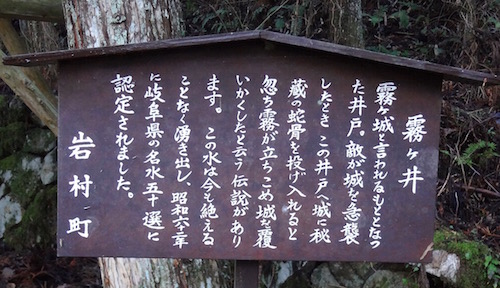 霧ヶ井
霧ヶ城と言われるもととなっ
た井戸。敵が城を急襲
したとき この井戸へ城に秘
蔵の蛇骨を投げ入れると
忽ち霧が立ちこめ城を覆
いかくしたと云う伝説があり
ます。 この水は今も絶える
ことなく湧き出し、昭和六十年
に岐阜県の名水五十選に
認定されました。
岩村町